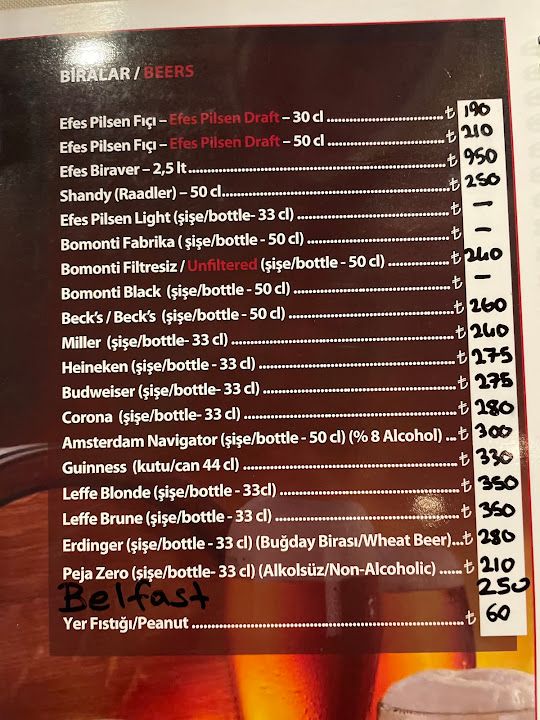 BİRALAR / BEERS
Efes Pilsen Fıçı – Efes Pilsen Draft – 30 cl ........ ₺ 190
Efes Pilsen Fıçı – Efes Pilsen Draft – 50 cl ........ ₺ 210
Efes Biraver – 2,5 lt ........ ₺ 950
Shandy (Raadler) – 50 cl ........ ₺ 250
Efes Pilsen Light (şişe/bottle- 33 cl) ........ ₺ –
Bomonti Fabrika ( şişe/bottle - 50 cl) ........ ₺ –
Bomonti Filtresiz / Unfiltered (şişe/bottle - 50 cl) ........ ₺ 240
Bomonti Black (şişe/bottle - 50 cl) ........ ₺ –
Beck's / Beck's (şişe/bottle - 50 cl) ........ ₺ 260
Miller (şişe/bottle- 33 cl) ........ ₺ 240
Heineken (şişe/bottle - 33 cl) ........ ₺ 275
Budweiser (şişe/bottle - 33 cl) ........ ₺ 275
Corona (şişe/bottle - 33 cl) ........ ₺ 280
Amsterdam Navigator (şişe/bottle - 50 cl) (% 8 Alcohol) ... ₺ 300
Guinness (kutu/can 44 cl) ........ ₺ 330
Leffe Blonde (şişe/bottle - 33cl) ........ ₺ 350
Leffe Brune (şişe/bottle - 33 cl) ........ ₺ 350
Erdinger (şişe/bottle - 33 cl) (Buğday Birası/Wheat Beer)... ₺ 280
Peja Zero (şişe/bottle- 33 cl) (Alkolsüz/Non-Alcoholic) ...... ₺ 210
Belfast 250
Yer Fıstığı/Peanut ........ ₺ 60